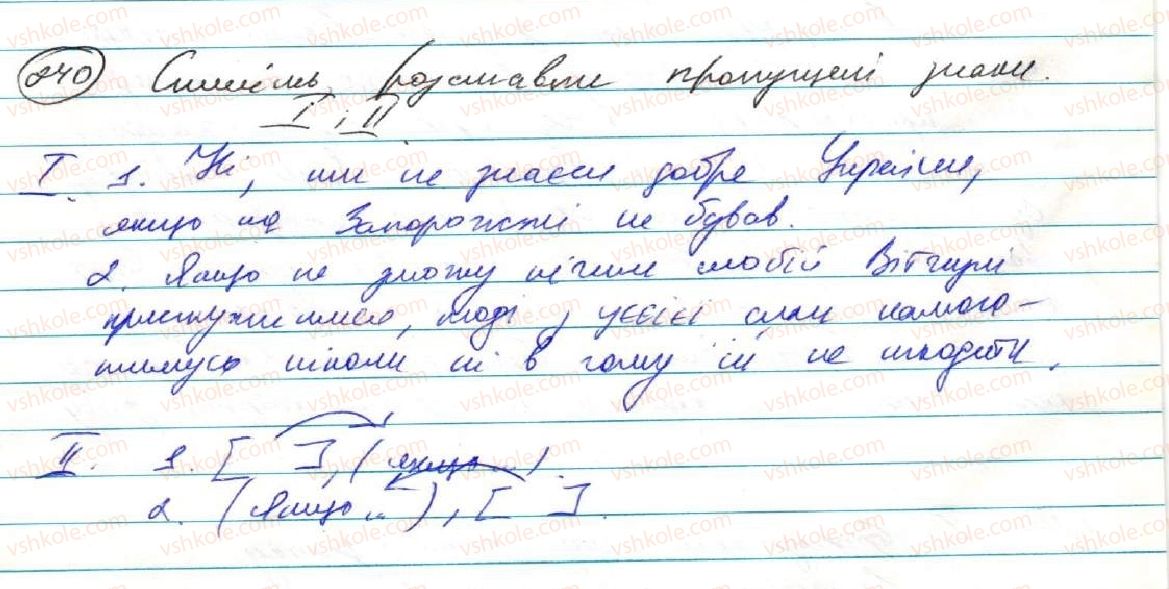 240 Спишіть, розставте пропущені знаки.
I, II
I. 1. Ні, ти не знаєш добре України,
якщо на Запорожжі не бував.
2. Якщо не зможу нічим любій Вітчизні
прислужитися, тоді з усієї сили намага-
тимусь ніколи ні в чому їй не шкодити.
II. 1. [ ], (якщо ...).
2. (Якщо ...), [ ].